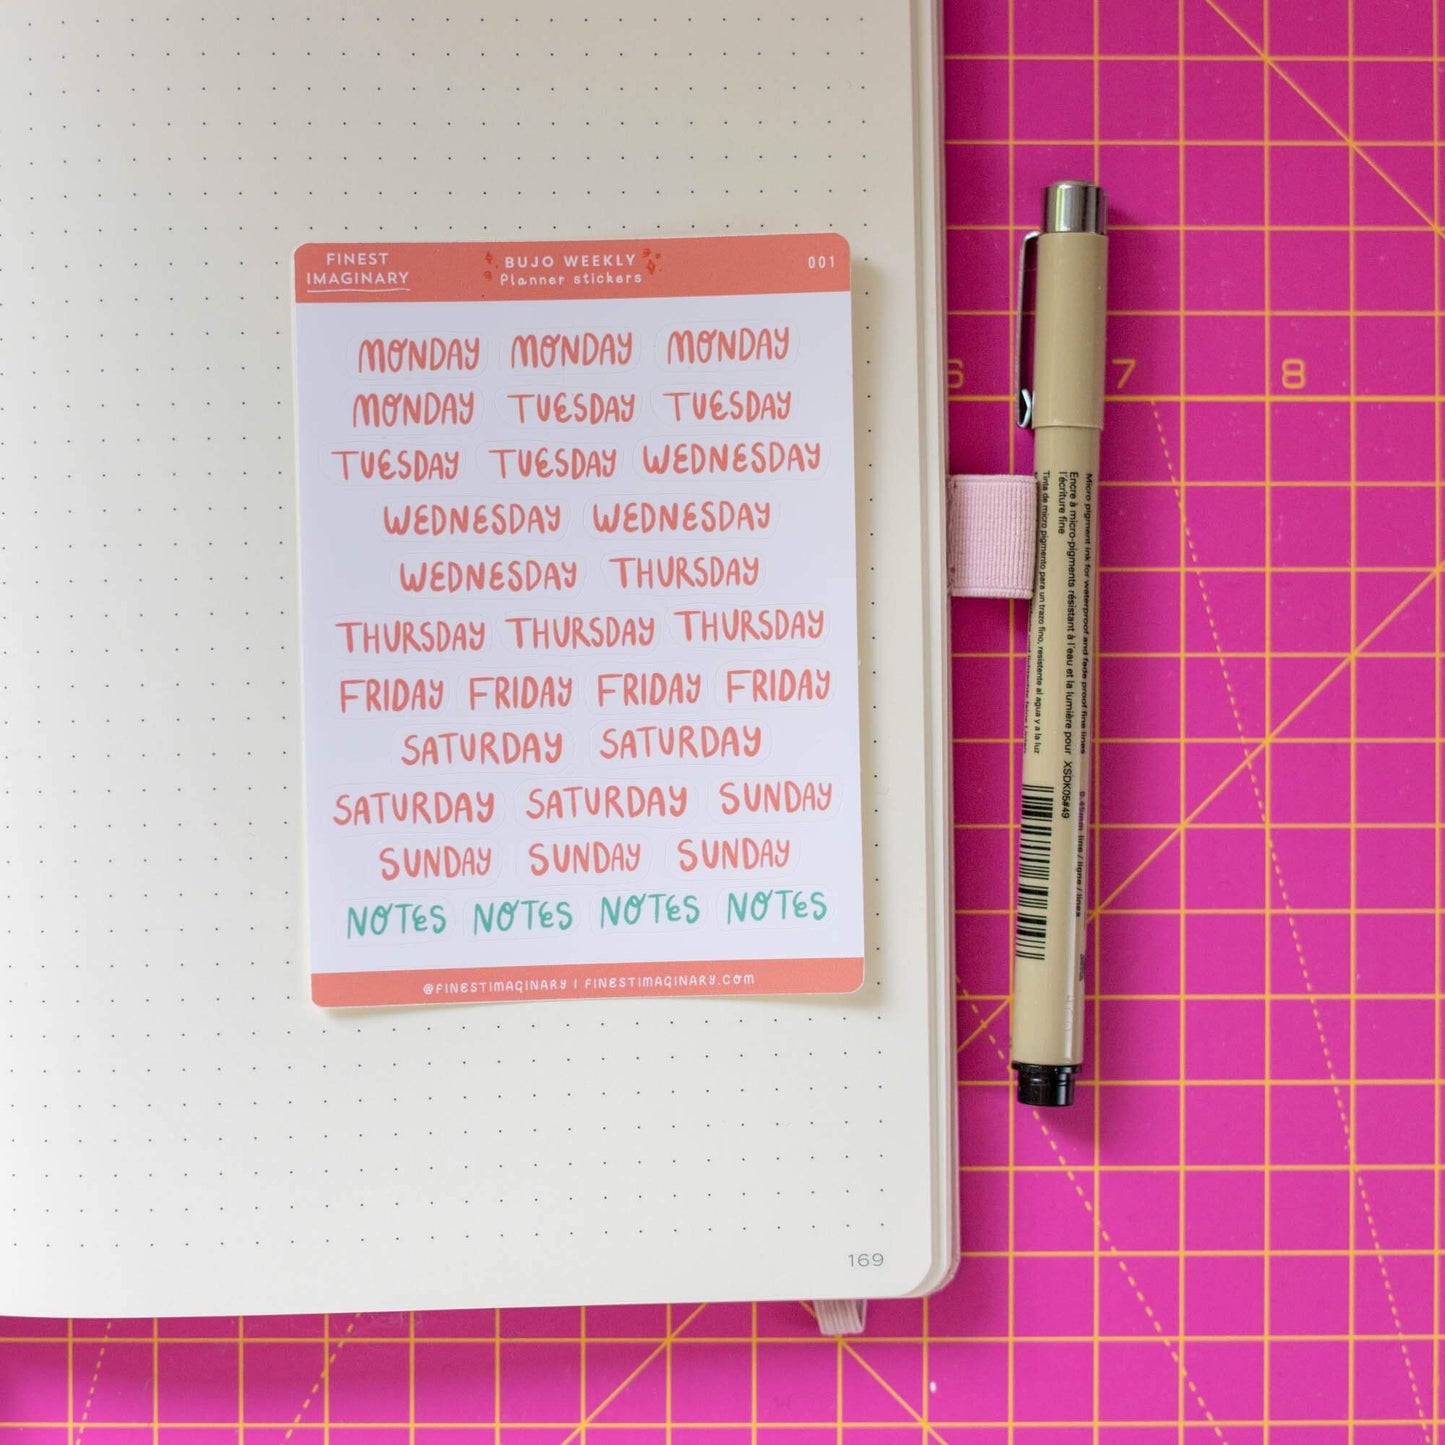 FINEST
IMAGINARY
BUJO WEEKLY
Planner stickers
001
MONDAY MONDAY MONDAY
MONDAY TUESDAY TUESDAY
TUESDAY TUESDAY WEDNESDAY
WEDNESDAY WEDNESDAY
WEDNESDAY THURSDAY
THURSDAY THURSDAY THURSDAY
FRIDAY FRIDAY FRIDAY FRIDAY
SATURDAY SATURDAY
SATURDAY SATURDAY SUNDAY
SUNDAY SUNDAY SUNDAY
NOTES NOTES NOTES NOTES
@FINESTIMAGINARY | FINESTIMAGINARY.COM
169
6 7 8
Micro pigment ink for waterproof and fade proof fine lines
Encre à micro-pigments résistant à l'eau et la lumière pour
l'écriture fine
Tinta de micro pigmento para un trazo fino, resistente al agua y a la luz
XSDK05#49
0.45mm line / ligne / línea